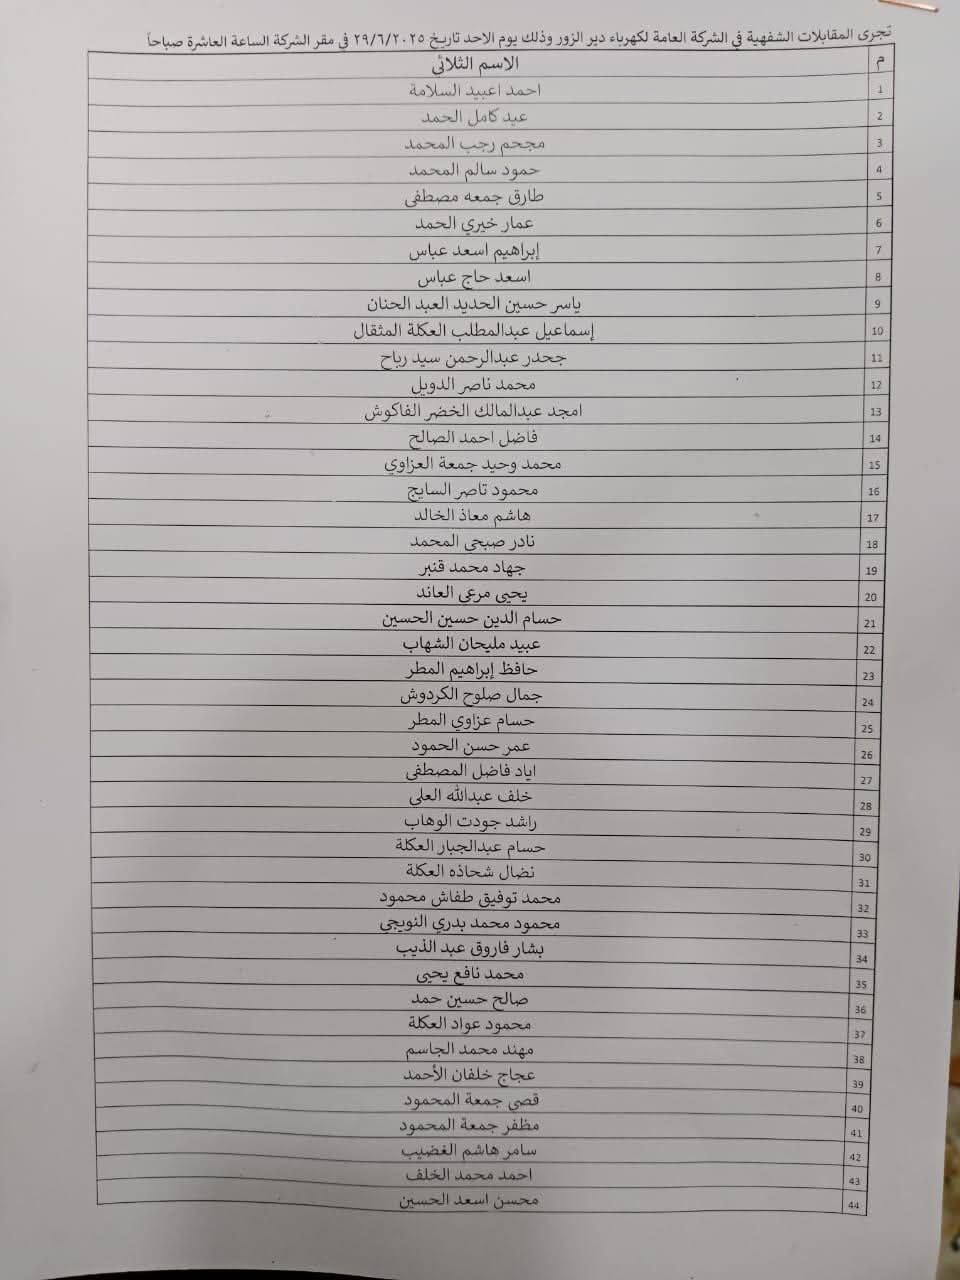 تجرى المقابلات الشفهية في الشركة العامة لكهرباء دير الزور وذلك يوم الاحد تاريخ ٢٩/٦/٢٠٢٥ في مقر الشركة الساعة العاشرة صباحاً
م الاسم الثلاثي
1 احمد اعبيد السلامة
2 عيد كامل الحمد
3 مجحم رجب المحمد
4 حمود سالم المحمد
5 طارق جمعه مصطفى
6 عمار خيري الحمد
7 إبراهيم اسعد عباس
8 اسعد حاج عباس
9 ياسر حسين الحديد العبد الحنان
10 إسماعيل عبدالمطلب العكلة المثقال
11 جحدر عبدالرحمن سيد رباح
12 محمد ناصر الدويل
13 امجد عبدالمالك الخضر الفاكوش
14 فاضل احمد الصالح
15 محمد وحيد جمعة العزاوي
16 محمود تاصر السايح
17 هاشم معاذ الخالد
18 نادر صبحي المحمد
19 جهاد محمد قنبر
20 يحيى مرعي العاند
21 حسام الدين حسين الحسين
22 عبيد مليحان الشهاب
23 حافظ إبراهيم المطر
24 جمال صلوح الكردوش
25 حسام عزاوي المطر
26 عمر حسن الحمود
27 اياد فاضل المصطفى
28 خلف عبدالله العلي
29 راشد جودت الوهاب
30 حسام عبدالجبار العكلة
31 نضال شحاذه العكلة
32 محمد توفيق طفاش محمود
33 محمود محمد بدري النويجي
34 بشار فاروق عبد الذيب
35 محمد نافع يحيى
36 صالح حسين حمد
37 محمود عواد العكلة
38 مهند محمد الجاسم
39 عجاج خلفان الأحمد
40 قصي جمعة المحمود
41 مظفر جمعة المحمود
42 سامر هاشم الغضيب
43 احمد محمد الخلف
44 محسن اسعد الحسين